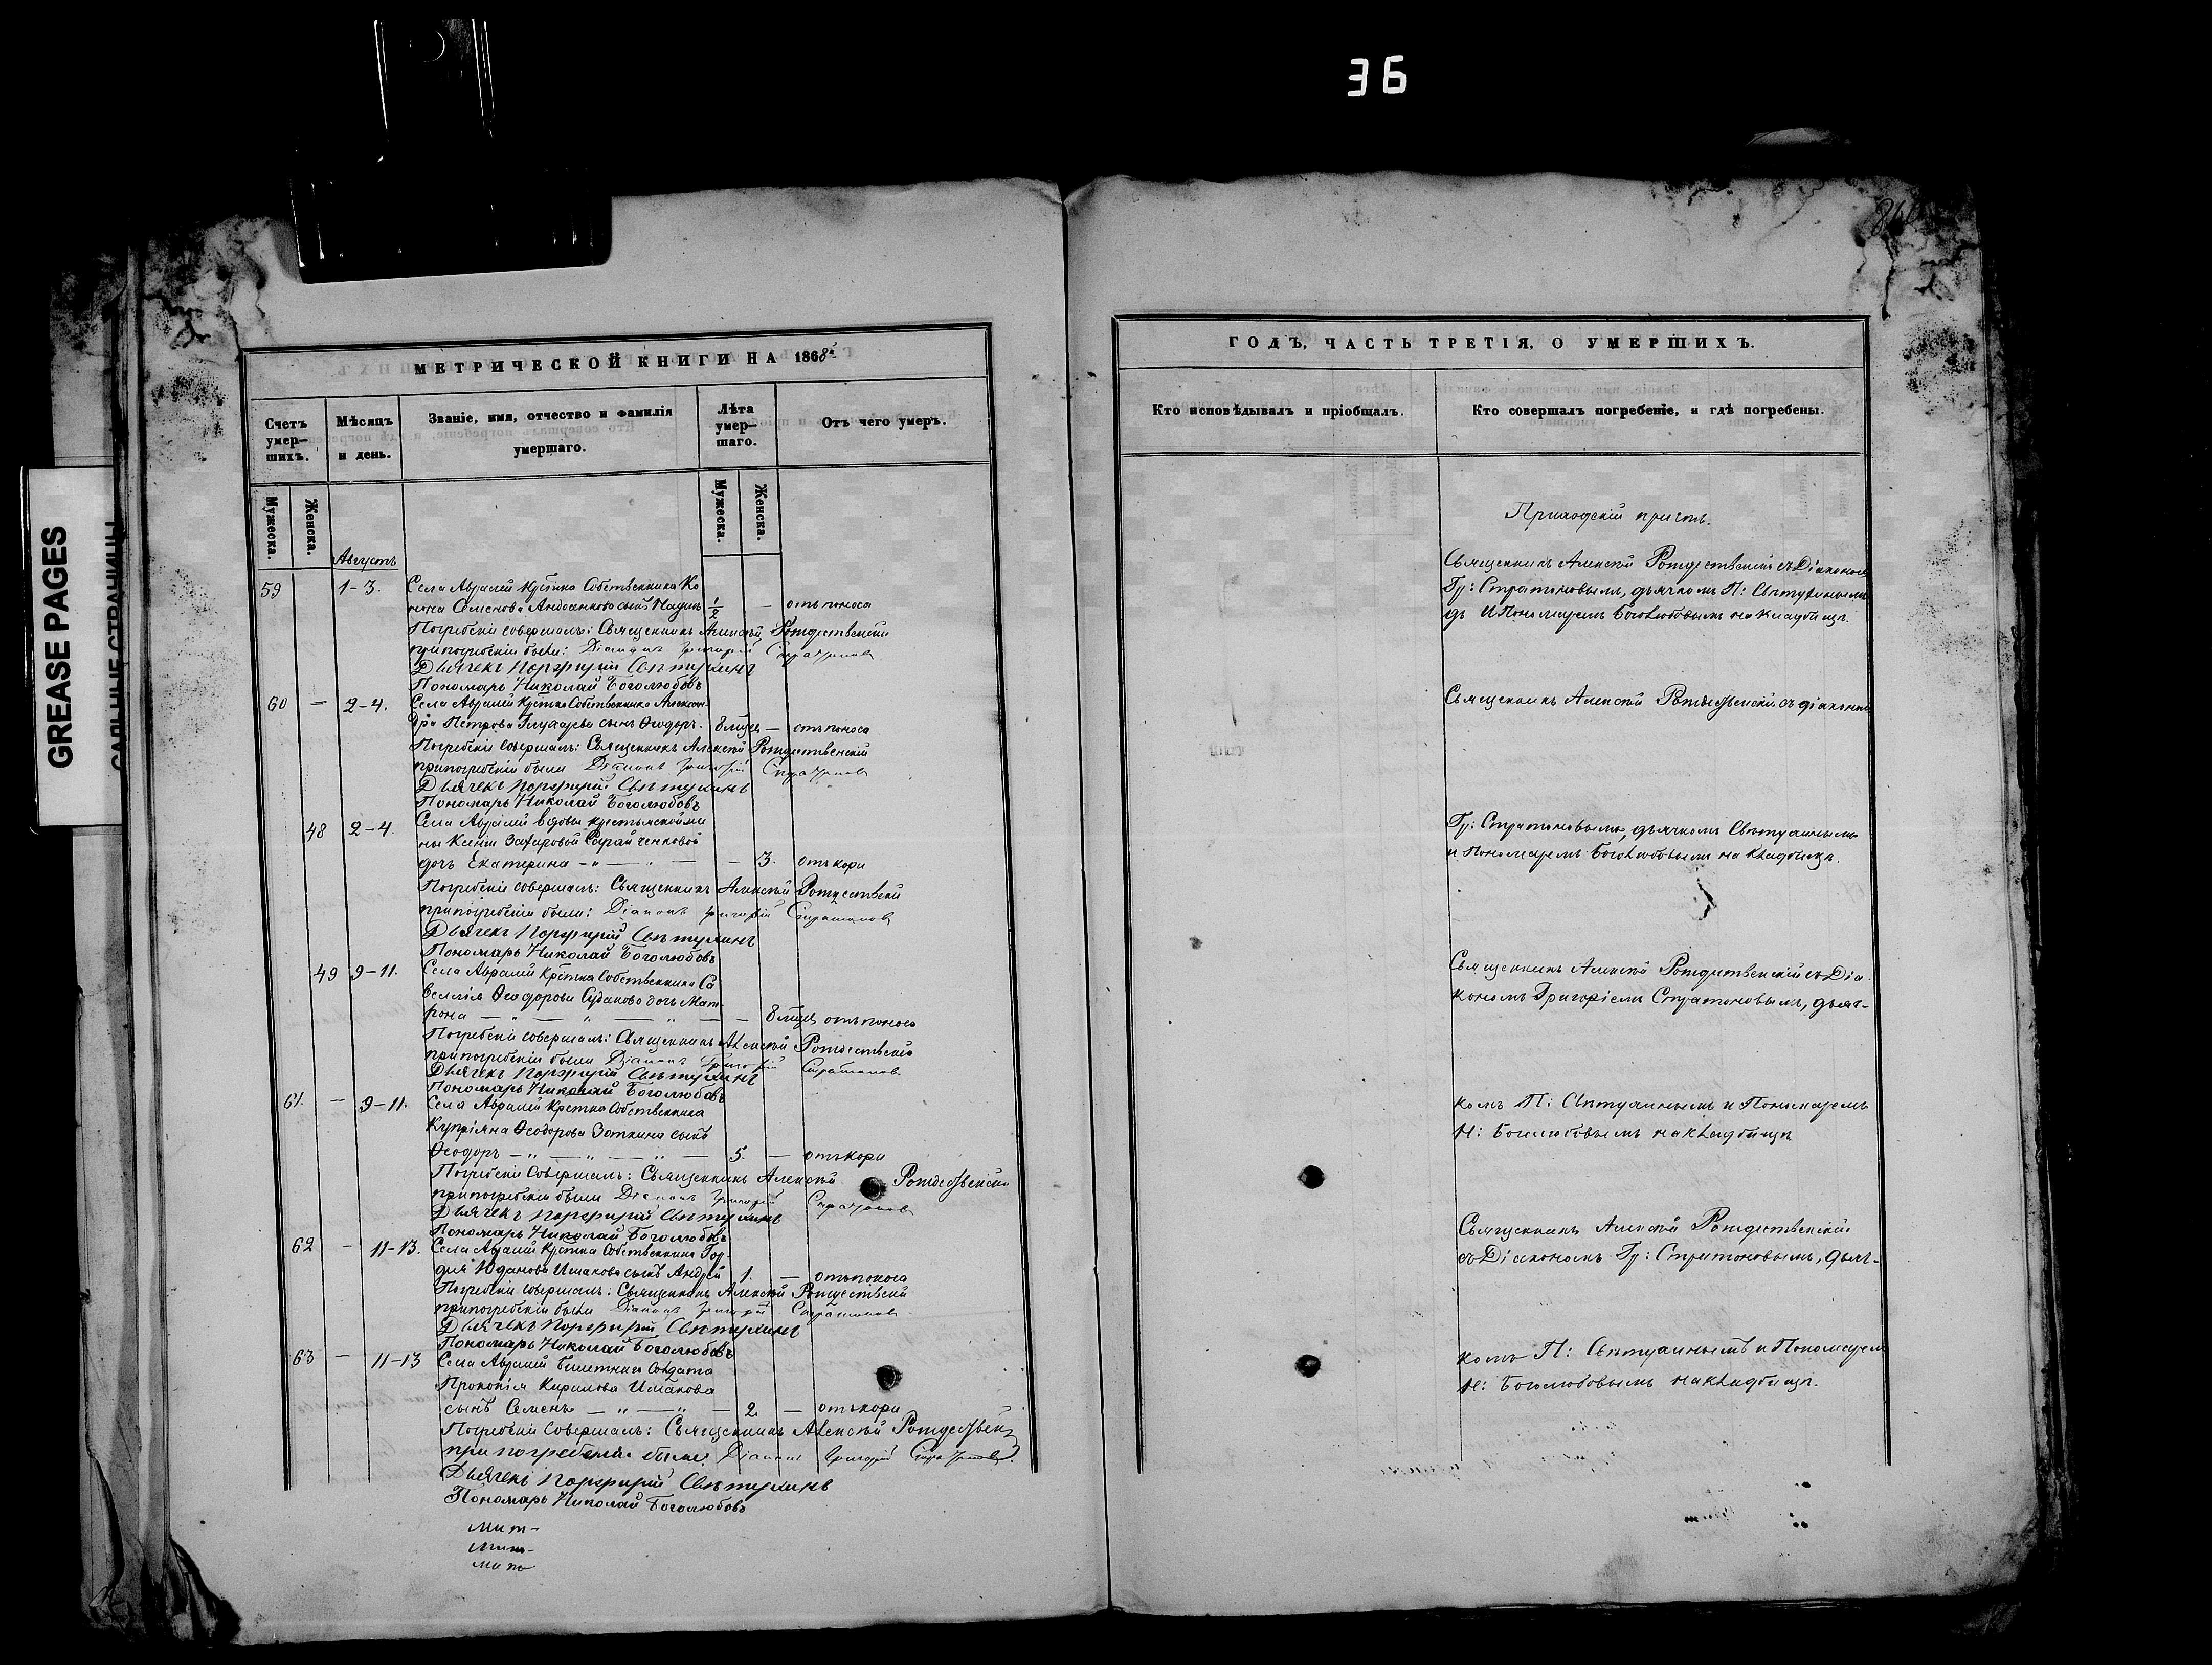 36
GREASE PAGES
МЕТРИЧЕСКОЙ КНИГИ НА 1868й
Счетъ умер-
шихъ.
Мѣсяцъ
и день.
Званіе, имя, отчество и фамилія
умершаго.
Лѣта
умер-
шаго.
Отъ чего умеръ.
Мужеска.
Женска.
Мужеска.
Женска.
Августъ
59 1-3. Села Авралей Крестна Собственника Ко
нона Семенова сынъ ½ - отъ поноса
Погребеніе совершалъ: Священникъ Алексѣй Рождественскій
при погребеніи были: Діаконъ Григорій Стратоновъ
Дьячекъ Порфирій Свѣтухинъ
Пономарь Николай Боголюбовъ
60 - 2-4. Села Авралей Крестна Собственника Алексан-
дра Петрова Глухарева сынъ Ѳеодоръ 8 мцъ - отъ поноса
Погребеніе совершалъ: Священникъ Алексѣй Рождественскій
при погребеніи были Діаконъ Григорій Стратоновъ
Дьячекъ Порфирій Свѣтухинъ
Пономарь Николай Боголюбовъ
48 2-4. Села Авралей вдовы крестьянской же
ны Ксеніи Захаровой
дочь Екатерина - " - " - - 3. отъ кори
Погребеніе совершалъ: Священникъ Алексѣй Рождественскій
при погребеніи были: Діаконъ Григорій Стратоновъ
Дьячекъ Порфирій Свѣтухинъ
Пономарь Николай Боголюбовъ
49 9-11. Села Авралей Крестна Собственника Са
велія Ѳеодорова дочь Мат-
рона - " - " - " - - 8 мцъ отъ поноса
Погребеніе совершалъ: Священникъ Алексѣй Рождественскій
при погребеніи были Діаконъ Григорій Стратоновъ
Дьячекъ Порфирій Свѣтухинъ
Пономарь Николай Боголюбовъ
61. - 9-11. Села Авралей Крестна Собственника
Купріяна Ѳеодорова Зоткина сынъ
Ѳеодоръ - " - " - " - 5. - отъ кори
Погребеніе Совершалъ: Священникъ Алексѣй Рождественскій
при погребеніи были Діаконъ Григорій Стратоновъ
Дьячекъ Порфирій Свѣтухинъ
Пономарь Николай Боголюбовъ
62 - 11-13. Села Авралей Крестна Собственника Гор-
дея Юданова Ишакова сынъ Андрей 1. - отъ поноса
Погребеніе совершалъ: Священникъ Алексѣй Рождественскій
при погребеніи были Діаконъ Григорій Стратоновъ
Дьячекъ Порфирій Свѣтухинъ
Пономарь Николай Боголюбовъ
63 - 11-13 Села Авралей билетнаго Солдата
Прокопія Кирилова Ишакова
сынъ Семенъ - " - " - 2 - отъ кори
Погребеніе Совершалъ: Священникъ Алексѣй
при погребеніи были: Діаконъ Григорій Стратоновъ
Дьячекъ Порфирій Свѣтухинъ
Пономарь Николай Боголюбовъ
ГОДЪ, ЧАСТЬ ТРЕТІЯ, О УМЕРШИХЪ.
Кто исповѣдывалъ и пріобщалъ.
Кто совершалъ погребеніе, и гдѣ погребены.
Приходскій
Священникъ Алексѣй Рождественскій съ Діакономъ
Гр: Стратоновымъ, дьячкомъ П: Свѣтухинымъ
и Пономаремъ Боголюбовымъ на кладбищѣ.
Священникъ Алексѣй Рождественскій съ діакономъ
Гр: Стратоновымъ, дьячкомъ Свѣтухинымъ
и Пономаремъ Боголюбовымъ на кладбищѣ.
Священникъ Алексѣй Рождественскій съ Діа-
кономъ Григоріемъ Стратоновымъ, дьяч-
комъ П: Свѣтухинымъ и Пономаремъ
Н: Боголюбовымъ на кладбищѣ
Священникъ Алексѣй Рождественскій
съ Діакономъ Гр: Стратоновымъ, дьяч-
комъ П: Свѣтухинымъ и Пономарем
Н: Боголюбовымъ на кладбищѣ.